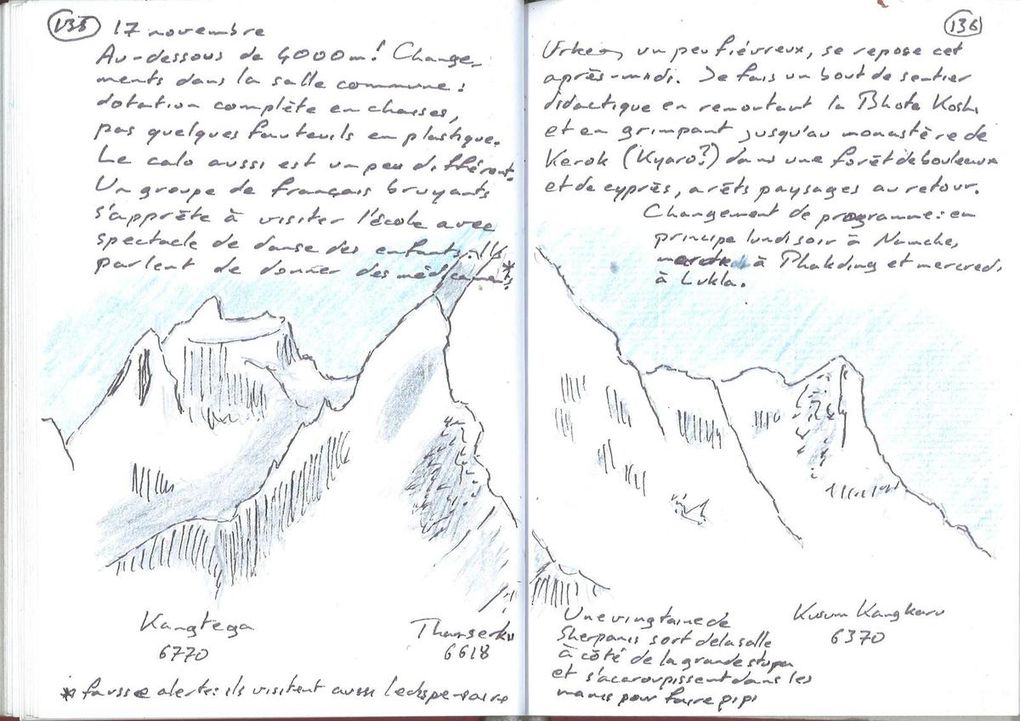 135
17 novembre
Au-dessous de 4000m! Change-
ments dans la salle commune:
dotation complète en chaises,
pas quelques fauteuils en plastique.
Le calo aussi est un peu différent.
Un groupe de français bruyants
s'apprête à visiter l'école avec
spectacle de danse des enfants. Ils
parlent de donner des médicaments*
Kangtega
6770
Thamserku
6618
* fausse alerte: ils visitent aussi le dispensaire
136
Urken, un peu fiévreux, se repose cet
après-midi. Je fais un bout de sentier
didactique en remontant la Bhote Koshi
et en grimpant jusqu'au monastère de
Kerok (Kyaro?) dans une forêt de bouleaux
et de cyprès, arêts paysages au retour.
Changement de programme: en
principe lundi soir à Namche,
à Phakding et mercredi
à Lukla.
Une vingtaine de
Sherpanis sort de la salle
à côté de la grande stupa
et s'accroupissent dans les
manis pour faire pipi
Kusum Kangkaru
6370